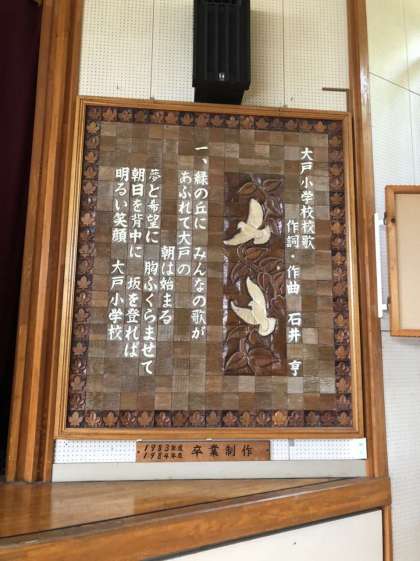 大戸小学校校歌
作詞・作曲 石井 亨
一、緑の丘に みんなの歌が
あふれて大戸の
朝は始まる
夢と希望に 胸ふくらませて
朝日を背中に 坂を登れば
明るい笑顔 大戸小学校
1983年度
1984年度
卒業制作